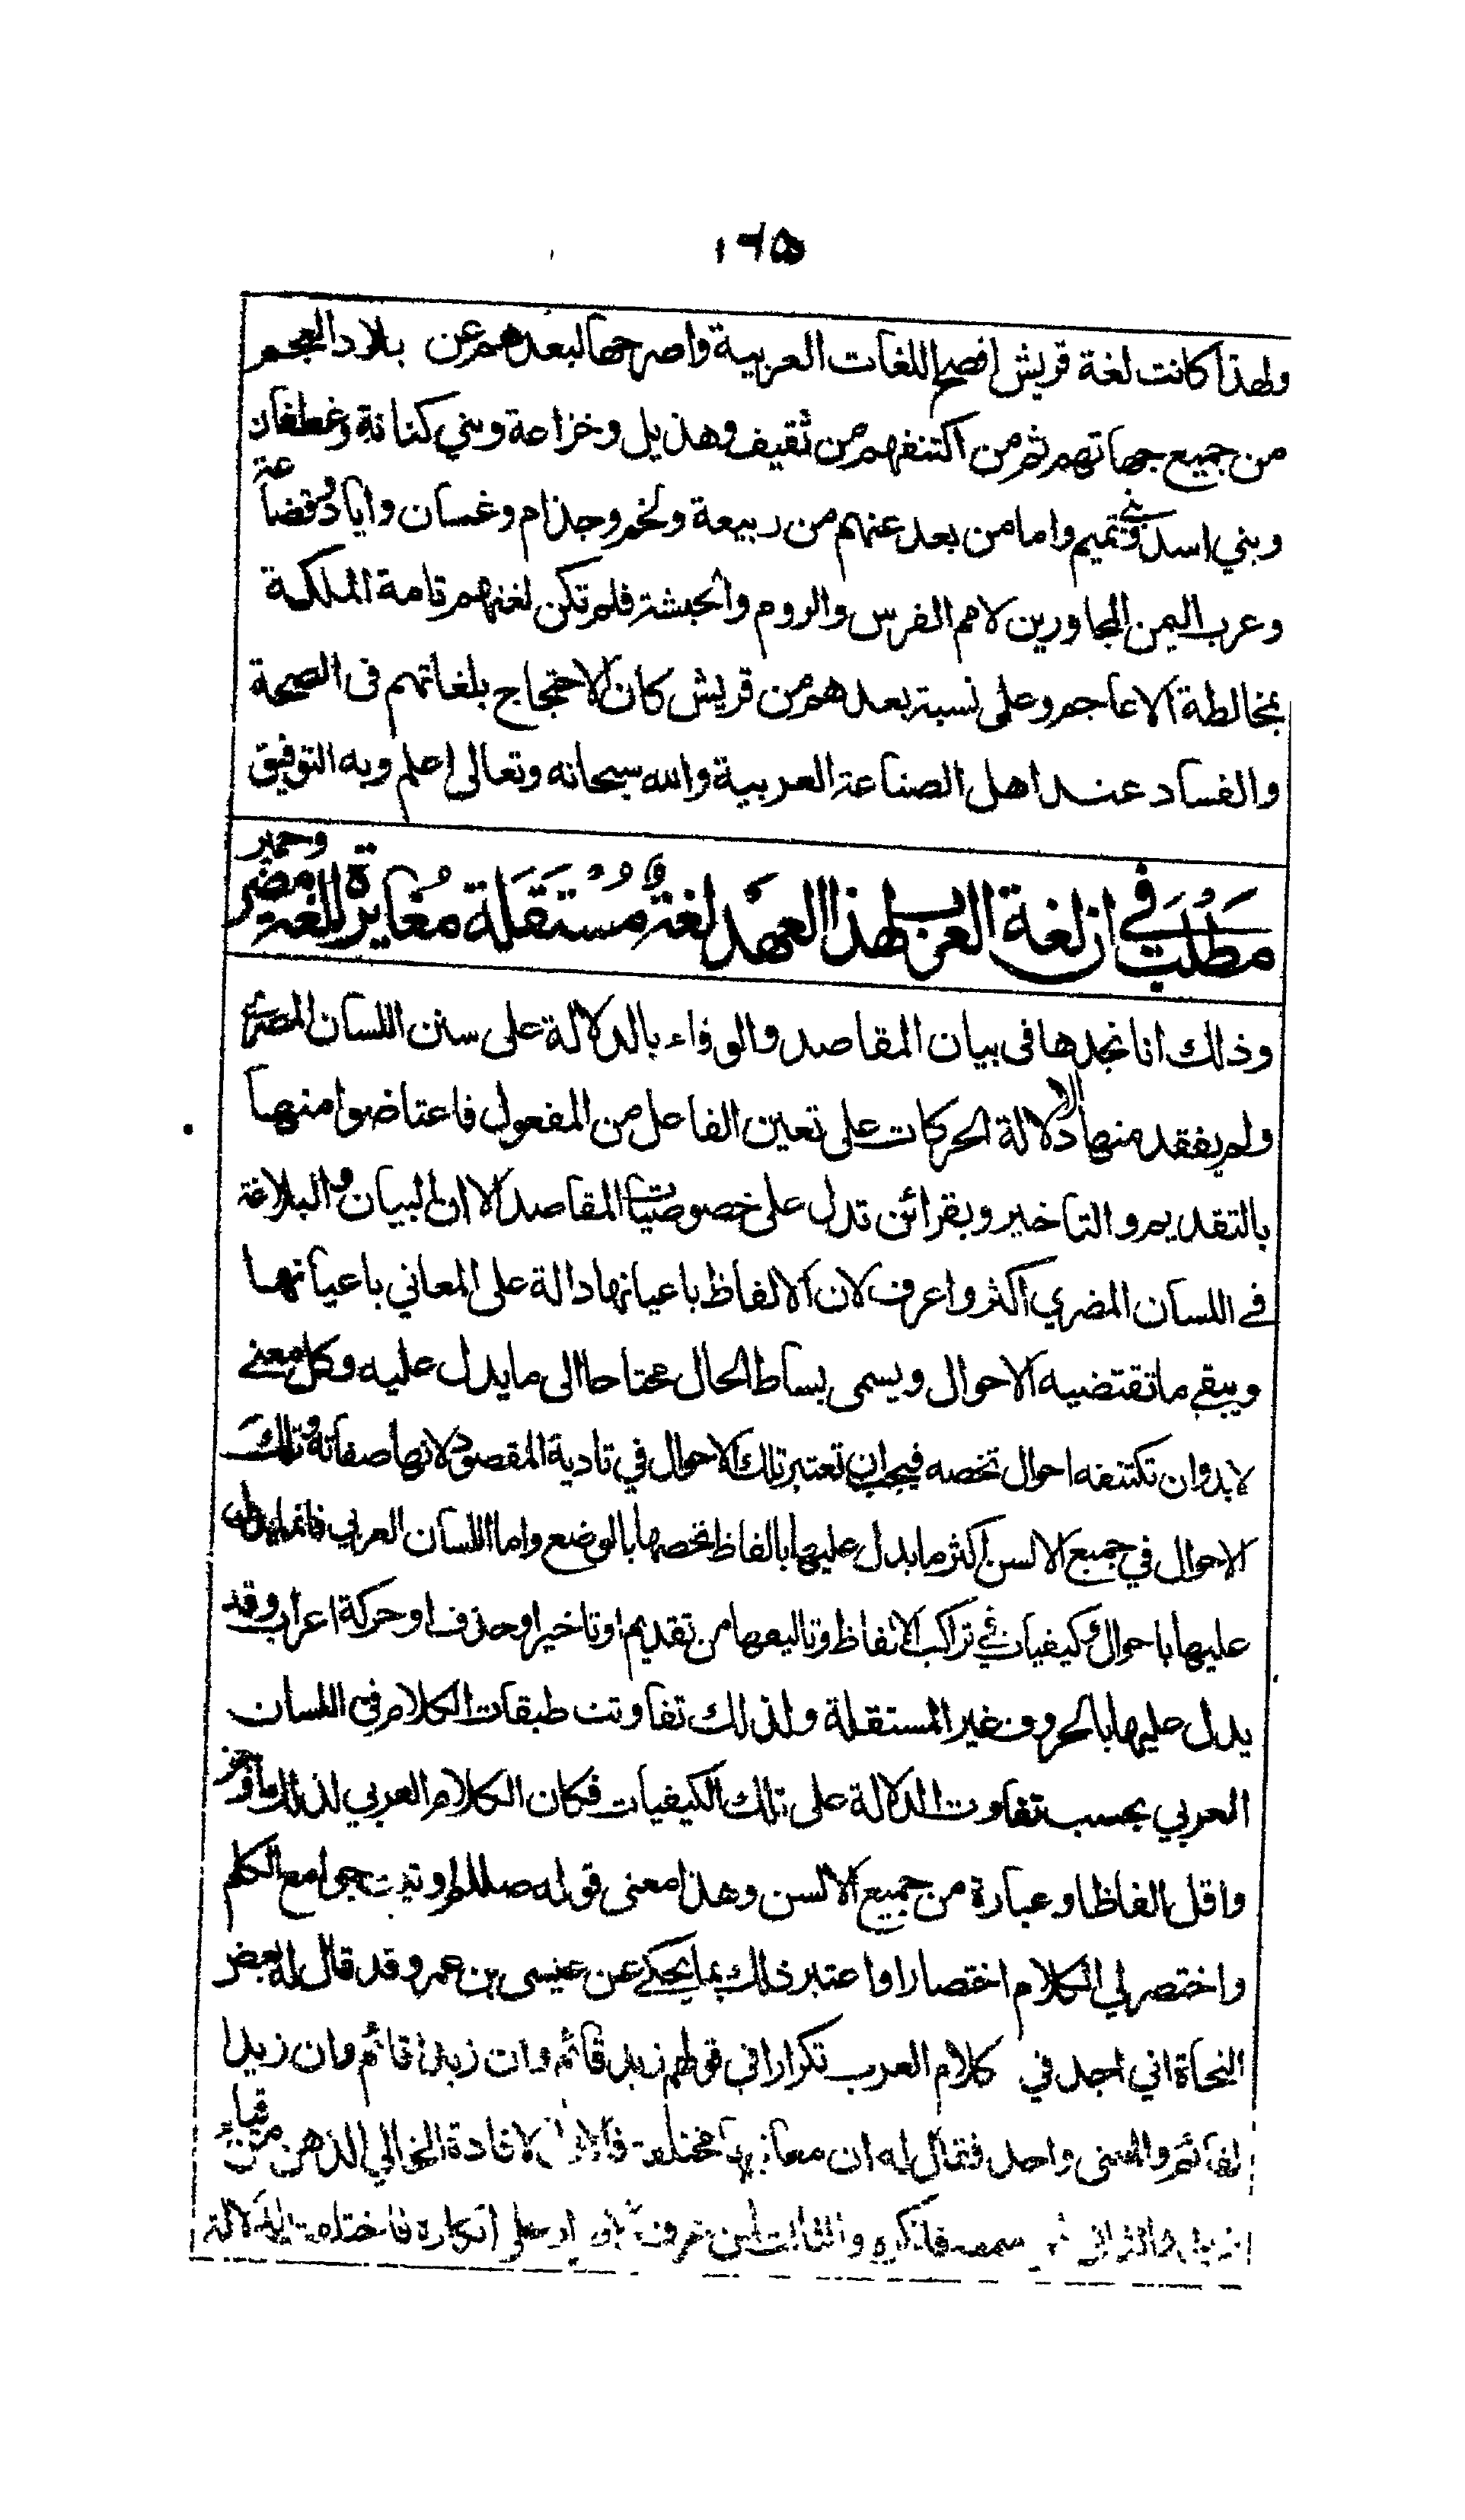 ١٦٥
ولهذا كانت لغة قريش افصح اللغات العربية واصرحها لبعدهم عن بلاد العجم
من جميع جهاتهم ثم من اكتنفهم من ثقيف وهذيل وخزاعة وبني كنانة وغطفان
وبني اسد وبني تميم واما من بعد عنهم من ربيعة ولخم وجذام وغسان واياد وقضاعة
وعرب اليمن المجاورين لامم الفرس والروم والحبشة فلم تكن لغتهم تامة الملكة
بمخالطة الاعاجم وعلى نسبة بعدهم من قريش كان الاحتجاج بلغاتهم فى الصحة
والفساد عند اهل الصناعة العربية والله سبحانه وتعالى اعلم وبه التوفيق
مَطْلَبُ في ان لغة العرب لهذا العهد لغةٌ مُسْتَقَلَة مُغايرة للغة مضر وحمير
وذلك انا نجدها فى بيان المقاصد والوفاء بالدلالة على سنن اللسان المضري
ولم يفقد منها الا دلالة الحركات على تعين الفاعل من المفعول فاعتاضوا منها
بالتقديم والتاخير وبقرائن تدل على خصوصيات المقاصد الا ان البيان والبلاغة
في اللسان المضري اكثر واعرف لان الالفاظ باعيانها دالة على المعاني باعيانها
ويبقى ما تقتضيه الاحوال ويسمى بساط الحال محتاجا الى ما يدل عليه وكل معنى
لابد وان تكتنفه احوال تخصه فيجب ان تعتبر تلك الاحوال في تادية المقصود لانها صفاته وتلك
الاحوال في جميع الالسن اكثر ما يدل عليها بالفاظ تخصها بالوضع واما اللسان العربي فانما يدل
عليها باحوال وكيفيات في تراكيب الالفاظ وتاليفها من تقديم او تاخير او حذف او حركة اعراب وقد
يدل عليها بالحروف غير المستقلة ولذلك تفاوتت طبقات الكلام فى اللسان
العربي بحسب تفاوت الدلالة على تلك الكيفيات فكان الكلام العربي لذلك اوجز
واقل الفاظا وعبارة من جميع الالسن وهذا معنى قوله صللم اوتيت جوامع الكلم
واختصر لي الكلام اختصارا واعتبر ذلك بما يحكى عن عيسى بن عمر وقد قال له بعض
النحاة اني اجد في كلام العرب تكرارا في قولهم زيد قائم وان زيدا قائم وان زيدا
لقائم والمعنى واحد فقال له ان معانيها مختلفة فالاول لافادة الخالي الذهن من قيام
زيد والثاني لمن سمعه فانكره والثالث لمن عرف بالاصرار على انكاره فاختلفت الدلالة